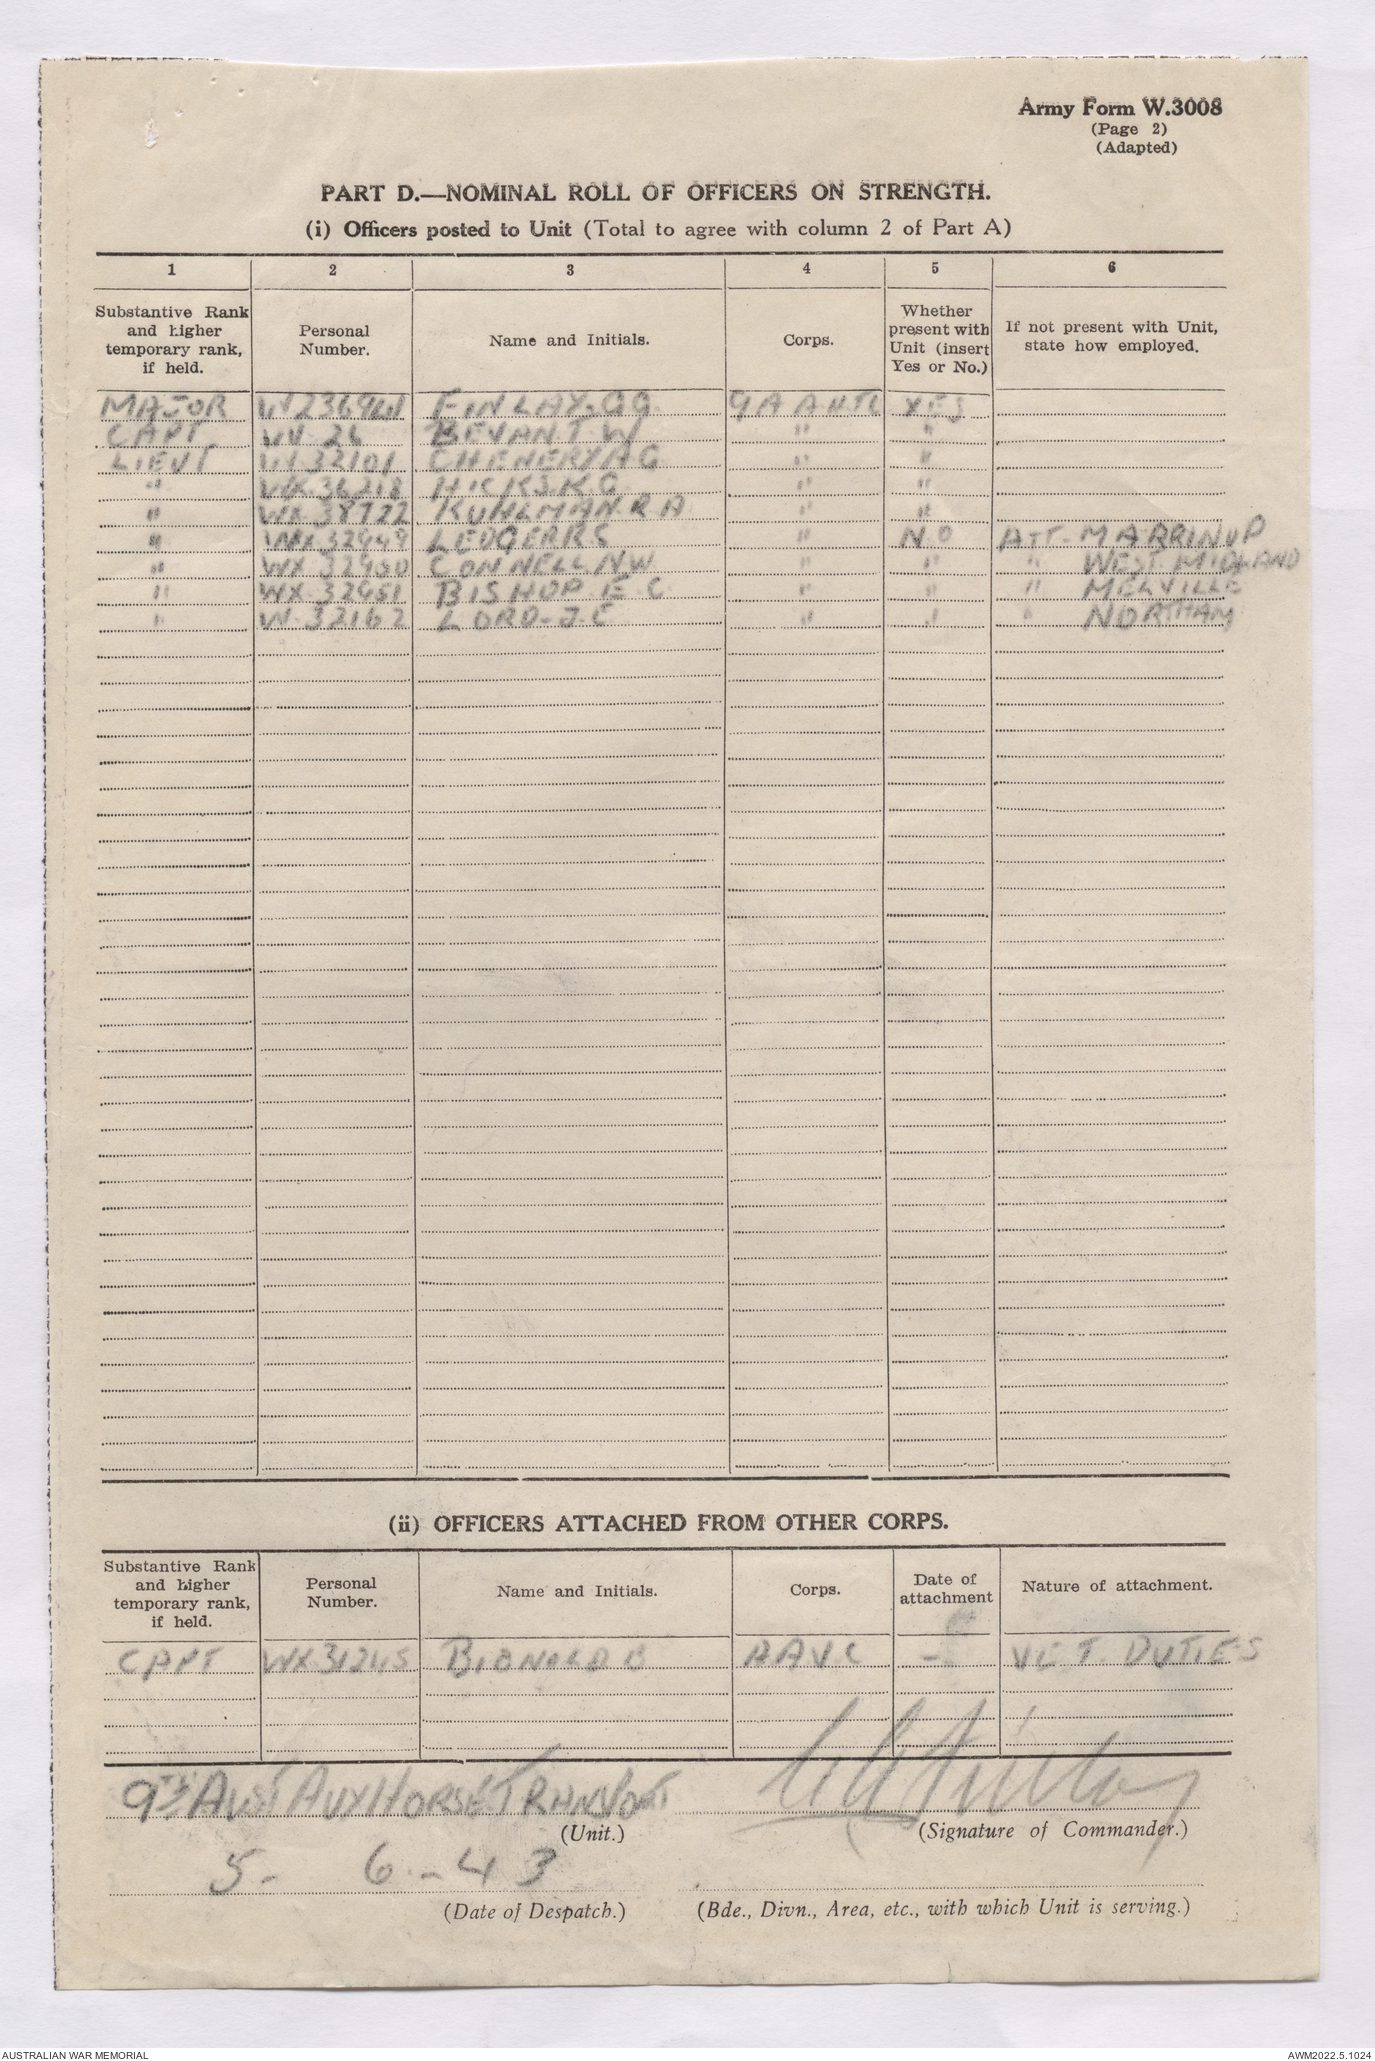 Army Form W.3008
(Page 2)
(Adapted)
PART D.—NOMINAL ROLL OF OFFICERS ON STRENGTH.
(i) Officers posted to Unit (Total to agree with column 2 of Part A)
1 2 3 4 5 6
Substantive Rank and higher temporary rank, if held. Personal Number. Name and Initials. Corps. Whether present with Unit (insert Yes or No.) If not present with Unit, state how employed.
MAJOR FINLAY. G G. 9 A A H.T.C YES
CAPT. WV. 26 BEVAN. T. W " "
LIEUT W. 32101 CHENERY A G " "
" WX. 36218 HICKS. K. G " "
" WX. 38722 KUHLMAN. R A " "
" WX. 32949 LEDGER R S " NO ATT. MARRINUP
" WX. 32950 CONNELL N W " " " WEST MIDLAND
" WX. 32951 BISHOP. E. C " " " MELVILLE
" W. 32162 LORD. J. C " " " NORTHAM
(ii) OFFICERS ATTACHED FROM OTHER CORPS.
Substantive Rank and higher temporary rank, if held. Personal Number. Name and Initials. Corps. Date of attachment Nature of attachment.
CAPT WX 31245 A A V C — VET. DUTIES
9th AUST AUX HORSE TRANSPORT
(Unit.) (Signature of Commander.)
5 - 6 - 43
(Date of Despatch.) (Bde., Divn., Area, etc., with which Unit is serving.)
AUSTRALIAN WAR MEMORIAL AWM2022.5.1024